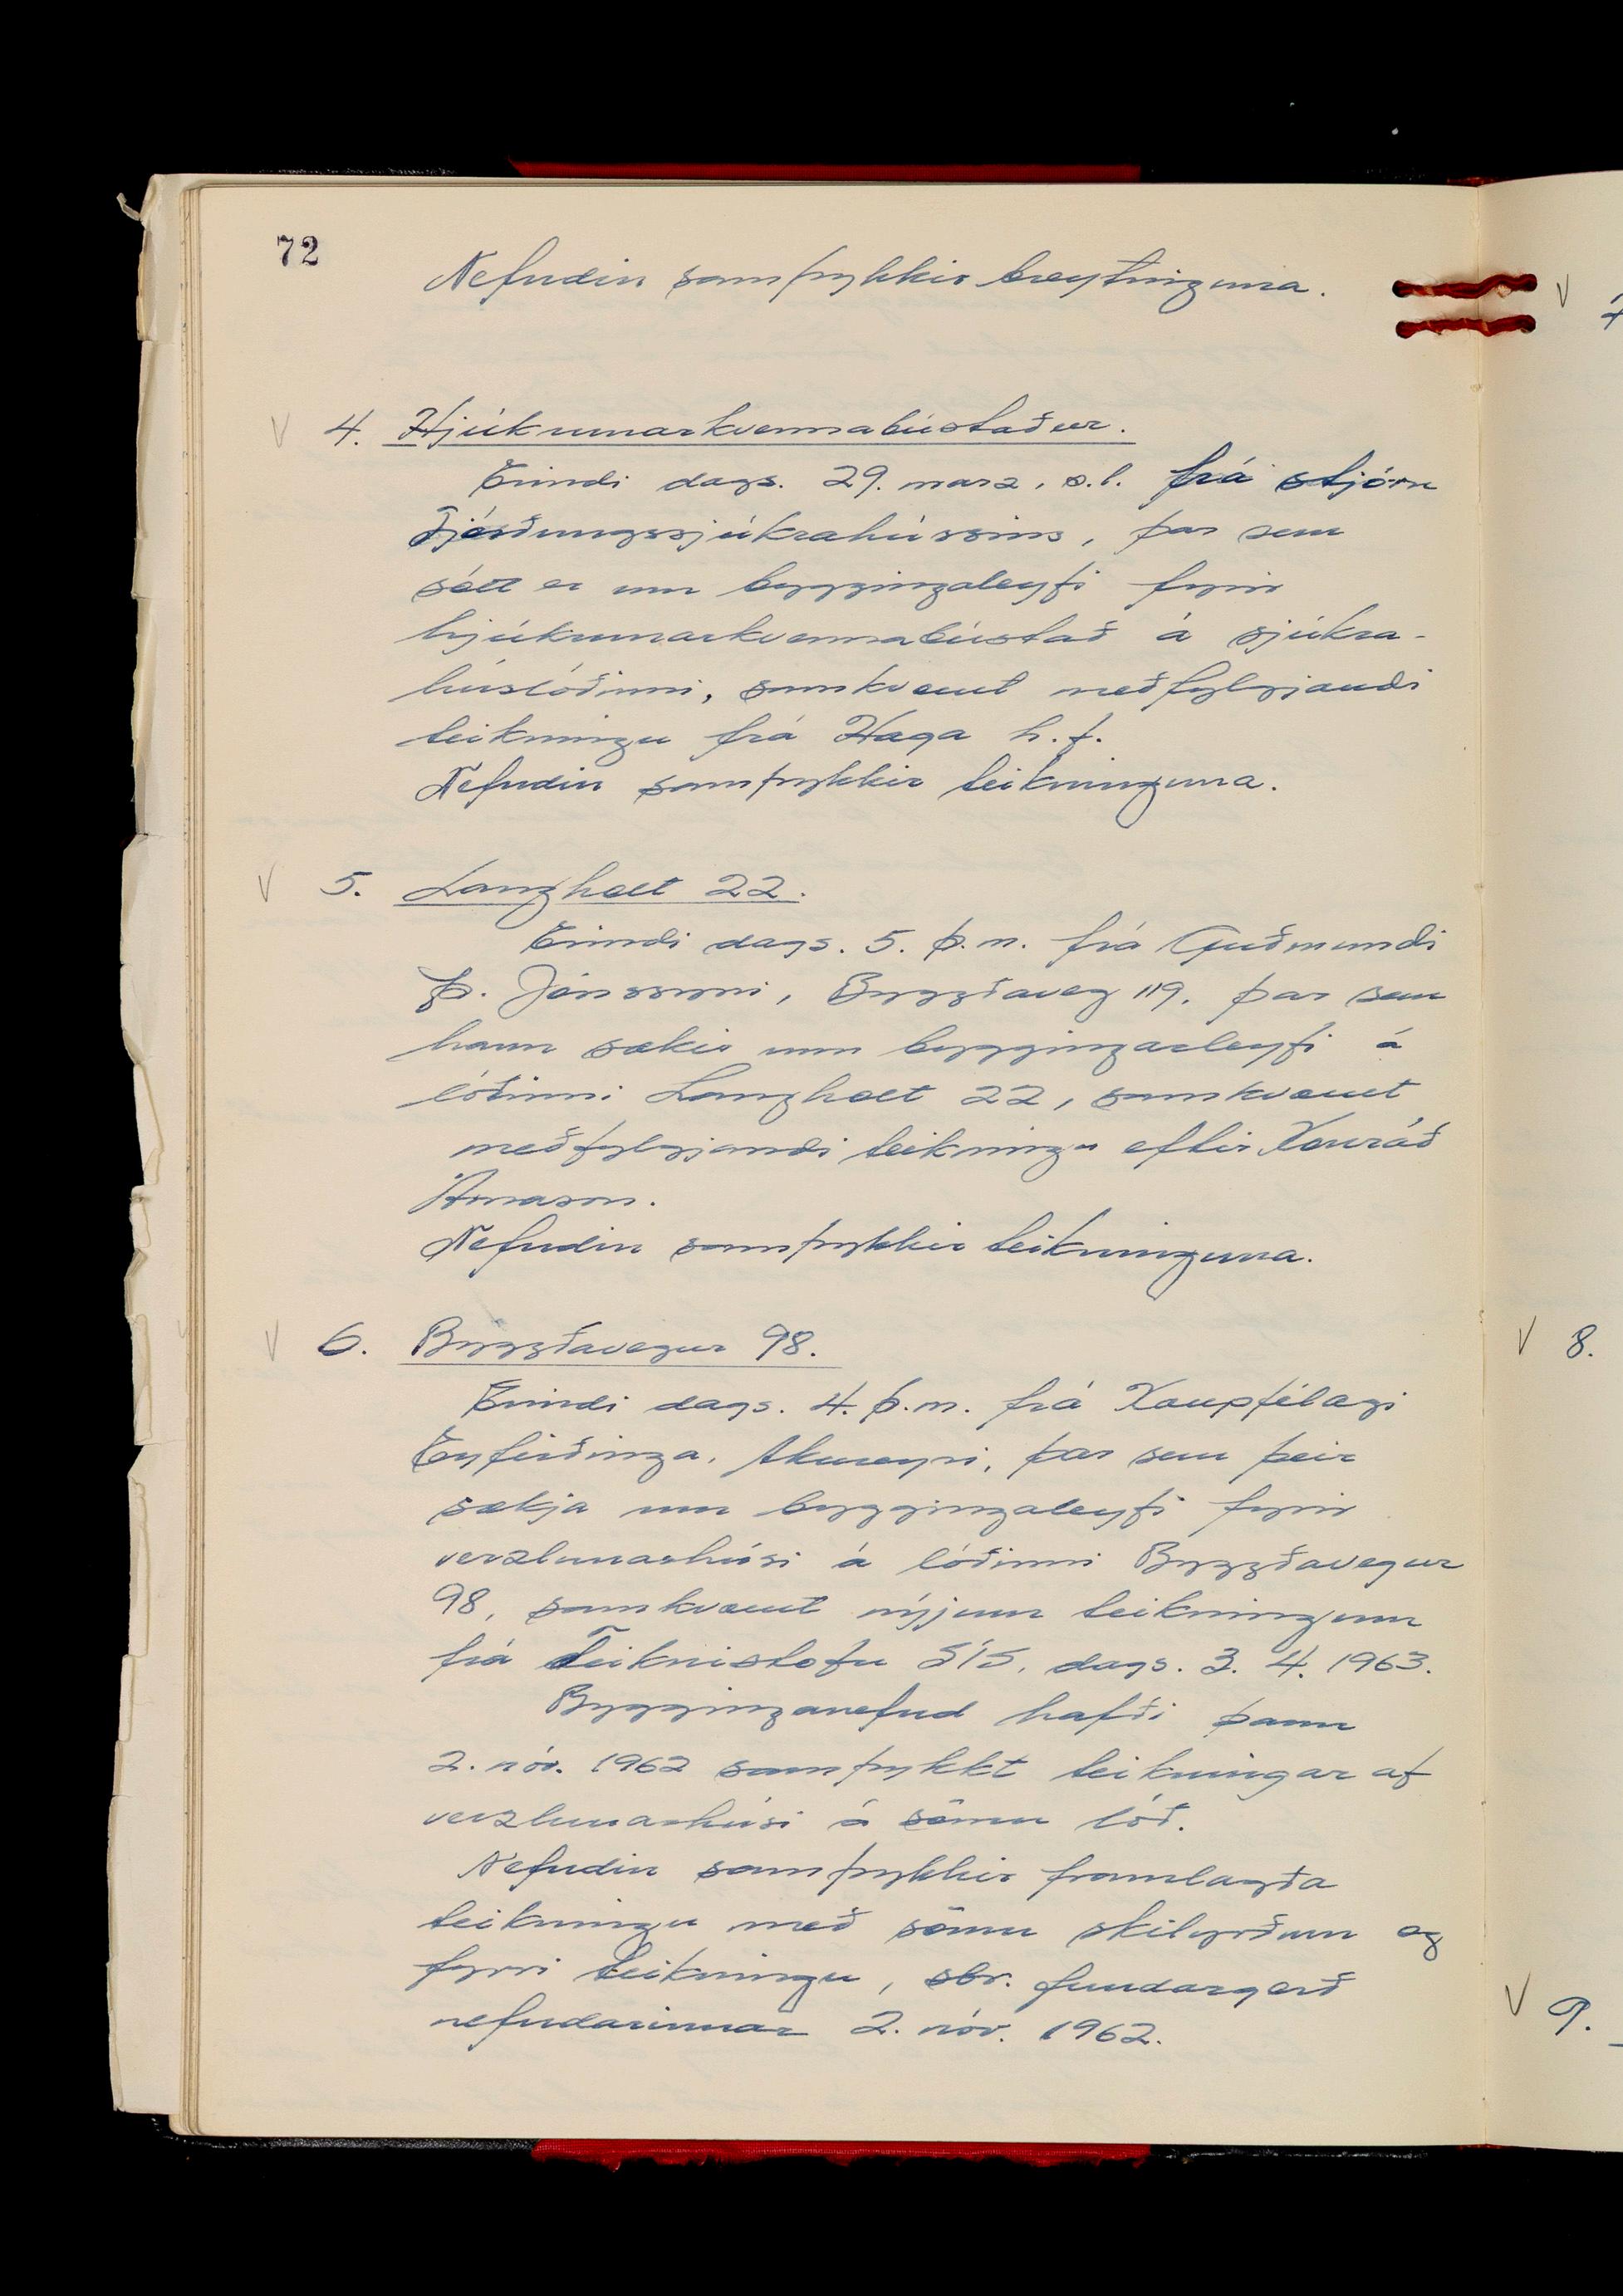 72
Nefndin samþykkir breytinguna.
V 4. Hjúkrunarkvennabústaður.
Erindi dags. 29. marz. s.l. frá stjórn
Fjórðungssjúkrahússins, þar sem
sótt er um byggingaleyfi fyrir
hjúkrunarkvennabústað á sjúkra-
húslóðinni, samkvæmt meðfylgjandi
teikningu frá Haga h.f.
Nefndin samþykkir teikninguna.
V 5. Langholt 22.
Erindi dags. 5. þ.m. frá Guðmundi
Þ. Jónssyni, Byggðaveg 119, þar sem
hann sækir um byggingarleyfi á
lóðinni Langholt 22, samkvæmt
meðfylgjandi teikningu eftir Konráð
Árnason.
Nefndin samþykkir teikninguna.
V 6. Byggðavegur 98.
Erindi dags. 4. þ.m. frá Kaupfélagi
Eyfirðinga, Akureyri, þar sem þeir
sækja um byggingaleyfi fyrir
verzlunarhúsi á lóðinni Byggðavegur
98, samkvæmt nýjum teikningum
frá Teiknistofu SÍS, dags. 3. 4. 1963.
Bygginganefnd hafði þann
2. nóv. 1962 samþykkt teikningar af
verzlunarhúsi á sömu lóð.
Nefndin samþykkir framlagða
teikningu með sömu skilyrðum og
fyrri teikningu, sbr. fundargerð
nefndarinnar 2. nóv. 1962.
V
V 8.
V 9.